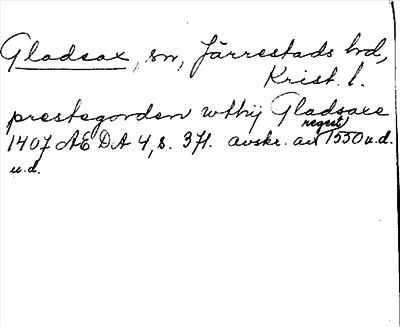 Gladsax, sn, Järrestads hd,
Krist. l.
prestegorden wthij Gladsaxe
1407 AE DA 4, s. 371. avskr. av regist 1550 u.d.
u.d.